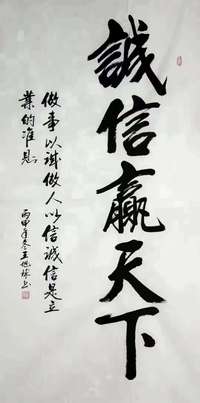 誠信贏天下
做事以誠做人以信誠信是立
業的准則
丙申年冬王旭